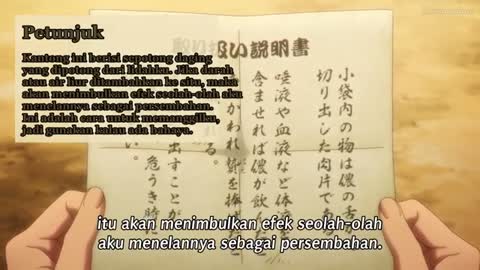 Petunjuk
Kantong ini berisi sepotong daging
yang dipotong dari lidahku. Jika darah
atau air liur ditambahkan ke situ, maka
akan menimbulkan efek seolah-olah aku
menelannya sebagai persembahan.
Ini adalah cara untuk memanggilku,
jadi gunakan kalau ada bahaya.
取り扱い説明書
小袋内の物は儂の舌
切り出した肉片で
唾液や血液など体
含ませれば儂が飲ん
かわれ贄を捧
る。
出すことが
危うき時に
itu akan menimbulkan efek seolah-olah
aku menelannya sebagai persembahan.